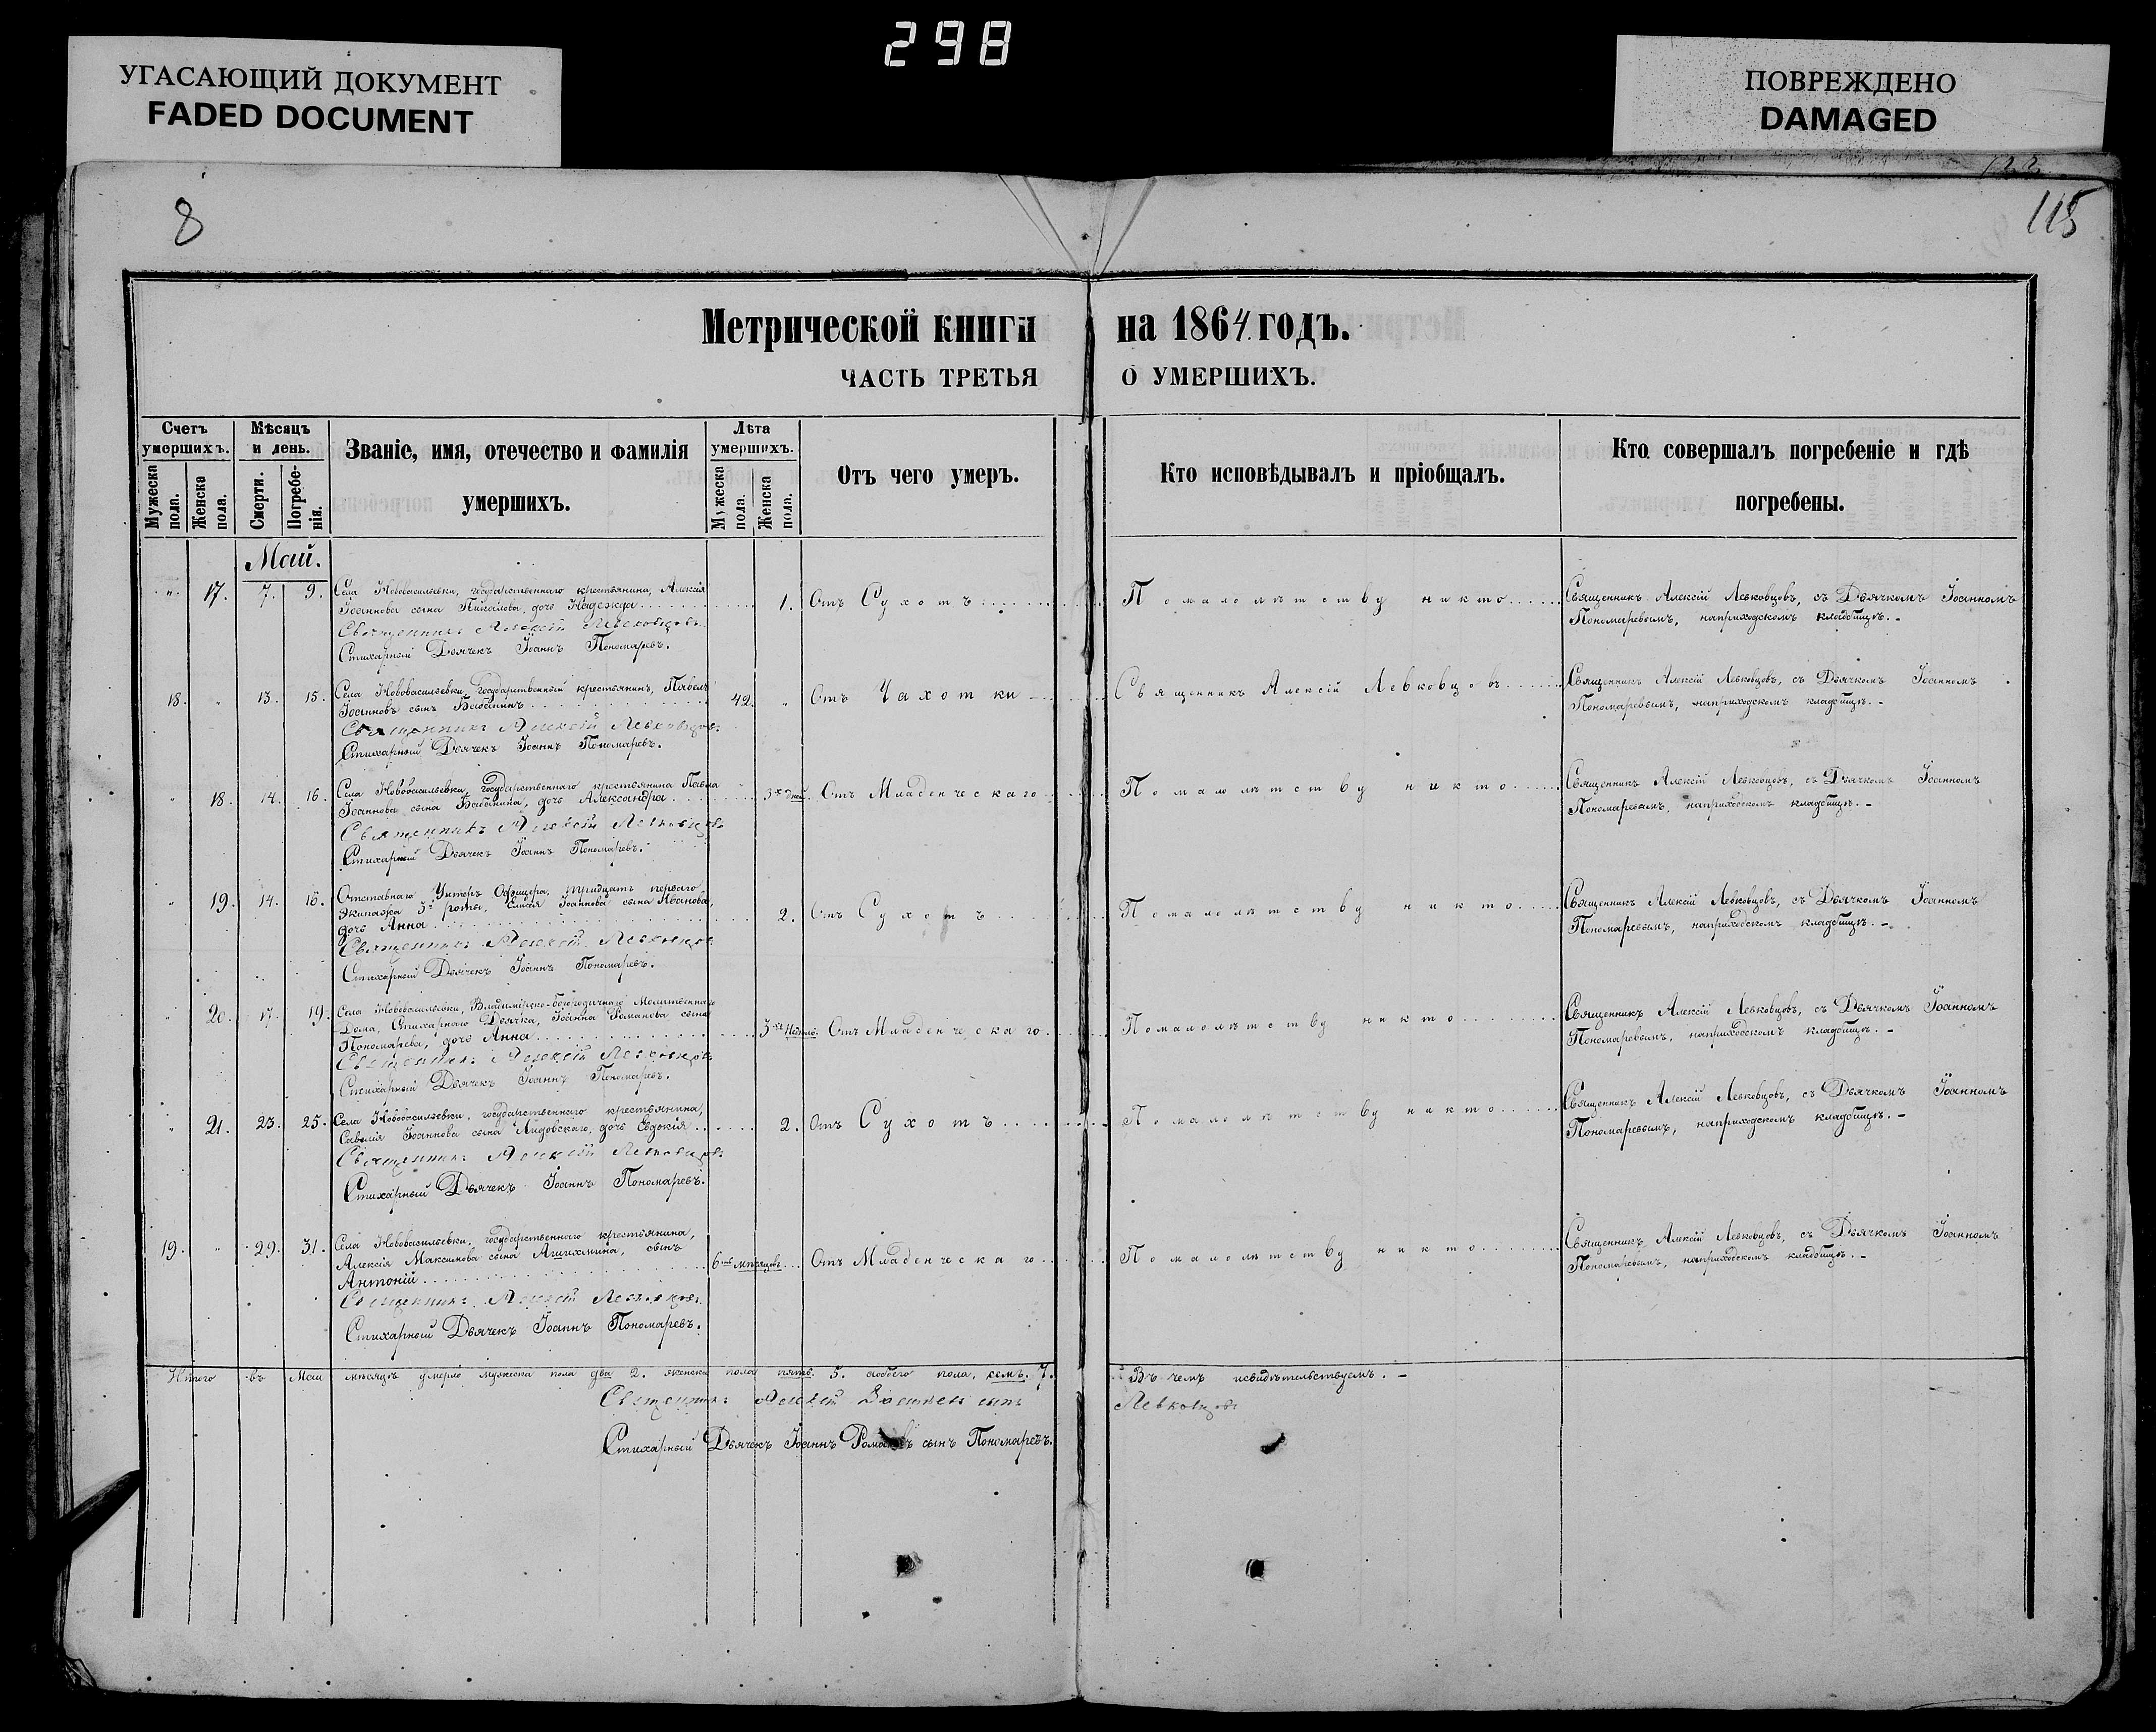 298
УГАСАЮЩИЙ ДОКУМЕНТ
FADED DOCUMENT
ПОВРЕЖДЕНО
DAMAGED
122
8
115
Метрической книги на 1864 годъ.
ЧАСТЬ ТРЕТЬЯ О УМЕРШИХЪ.
Счетъ умершихъ.
Мужеска пола.
Женска пола.
Мѣсяцъ и день.
Смерти.
Погребенія.
Званіе, имя, отечество и фамилія
умершихъ.
Лѣта умершихъ.
Мужеска пола.
Женска пола.
Отъ чего умеръ.
Кто исповѣдывалъ и пріобщалъ.
Кто совершалъ погребеніе и гдѣ
погребены.
Май.
" 17. 7. 9.
Села Нововасильевки, государственнаго крестьянина, Алексія
Іоаннова сына Пихалова, дочь Надежда
Священникъ Алексій Левковцовъ
Стихарный Дьячекъ Іоаннъ Пономаревъ.
1. Отъ Сухотъ
По малолѣтству никто
Священникъ Алексій Левковцовъ, съ Дьячкомъ Іоанномъ
Пономаревымъ, наприходскомъ кладбищѣ. -
18. " 13. 15.
Села Нововасильевки, Государственный крестьянинъ, Павелъ
Іоанновъ сынъ Бабанинъ
Священникъ Алексій Левковцовъ
Стихарный Дьячекъ Іоаннъ Пономаревъ.
42. " Отъ Чахотки
Священникъ Алексій Левковцовъ
Священникъ Алексій Левковцовъ, съ Дьячкомъ Іоанномъ
Пономаревымъ, наприходскомъ кладбищѣ. -
" 18. 14. 16.
Села Нововасильевки, Государственнаго крестьянина Павла
Іоаннова сына Бабанина, дочь Александра
Священникъ Алексій Левковцовъ
Стихарный Дьячекъ Іоаннъ Пономаревъ.
3хъ дней. Отъ Младенческаго
По малолѣтству никто
Священникъ Алексій Левковцовъ, съ Дьячкомъ Іоанномъ
Пономаревымъ, наприходскомъ кладбищѣ. -
" 19. 14. 16.
Отставнаго Унтеръ Офицера, тридцать перваго
Экипажа 3й роты, Елисея Іоаннова сына Иванова,
дочь Анна
Священникъ Алексій Левковцовъ
Стихарный Дьячекъ Іоаннъ Пономаревъ.
2. Отъ Сухотъ
По малолѣтству никто
Священникъ Алексій Левковцовъ, съ Дьячкомъ Іоанномъ
Пономаревымъ, наприходскомъ кладбищѣ. -
" 20. 17. 19.
Села Нововасильевки, Владимірско-Богородичнаго Молитвеннаго
Дома, Стихарнаго Дьячка, Іоанна Романова сына
Пономарева, дочь Анна
Священникъ Алексій Левковцовъ
Стихарный Дьячекъ Іоаннъ Пономаревъ.
3хъ Недѣль. Отъ Младенческаго
По малолѣтству никто
Священникъ Алексій Левковцовъ, съ Дьячкомъ Іоанномъ
Пономаревымъ, наприходскомъ кладбищѣ. -
" 21. 23. 25.
Села Нововасильевки, государственнаго крестьянина,
Савелія Іоаннова сына Лидовскаго, дочь Евдокія
Священникъ Алексій Левковцовъ
Стихарный Дьячекъ Іоаннъ Пономаревъ.
2. Отъ Сухотъ
По малолѣтству никто
Священникъ Алексій Левковцовъ, съ Дьячкомъ Іоанномъ
Пономаревымъ, наприходскомъ кладбищѣ. -
19. " 29. 31.
Села Нововасильевки, государственнаго крестьянина,
Алексія Максимова сына Ашихмина, сынъ
Антоній
Священникъ Алексій Левковцовъ
Стихарный Дьячекъ Іоаннъ Пономаревъ.
6ти мѣсяцовъ. Отъ Младенческаго
По малолѣтству никто
Священникъ Алексій Левковцовъ, съ Дьячкомъ Іоанномъ
Пономаревымъ, наприходскомъ кладбищѣ. -
Итого въ Маи мѣсяцѣ умерло мужеска пола два 2. женска пола пять. 5. аобоего пола, семь. 7. Въ чемъ исвидѣтельствуемъ. -
Священникъ Алексій Васильевъ сынъ Левковцовъ
Стихарный Дьячекъ Іоаннъ Романовъ сынъ Пономаревъ.